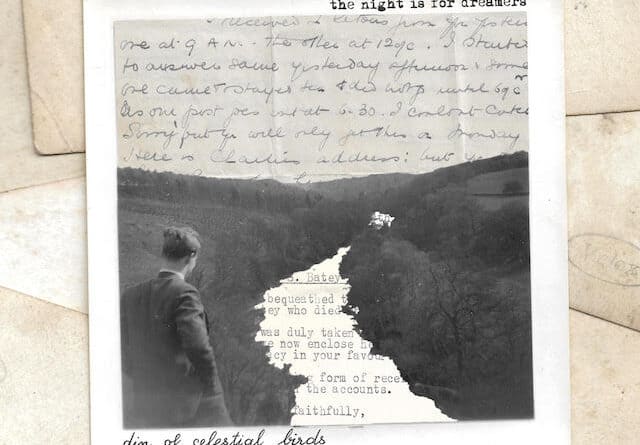 the night is for dreamers
received 2 letters from you yesterday
one at 9 A.M. the other at 12
to answer same yesterday afternoon & some
one came & stayed tea & did not go until
As our post goes out at 6.30. I couldnt catch
Sorry but you will only get this on Monday
Here is Charlies address: but
S. Batey
bequeathed t
ey who died
was duly taken
e now enclose he
acy in your favou
g form of rece
the accounts.
faithfully,
din of celestial birds